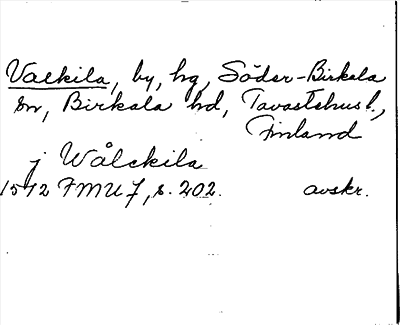 Valkila, by, hg, Söder-Birkala
sn, Birkala hd, Tavastehus l.,
Finland
j Wålckila
1512 FMU 7, s. 202. avskr.